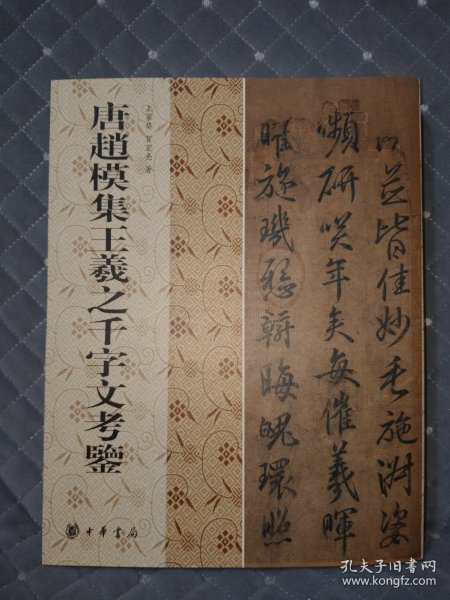 唐趙模集王羲之千字文考鑒
王家葵 賈宏亮 著
並皆佳妙毛施淑姿
嚬研咲年矢每催羲暉
曜旋璣懸斡晦魄環照
中華書局
孔夫子旧书网
www.kongfz.com